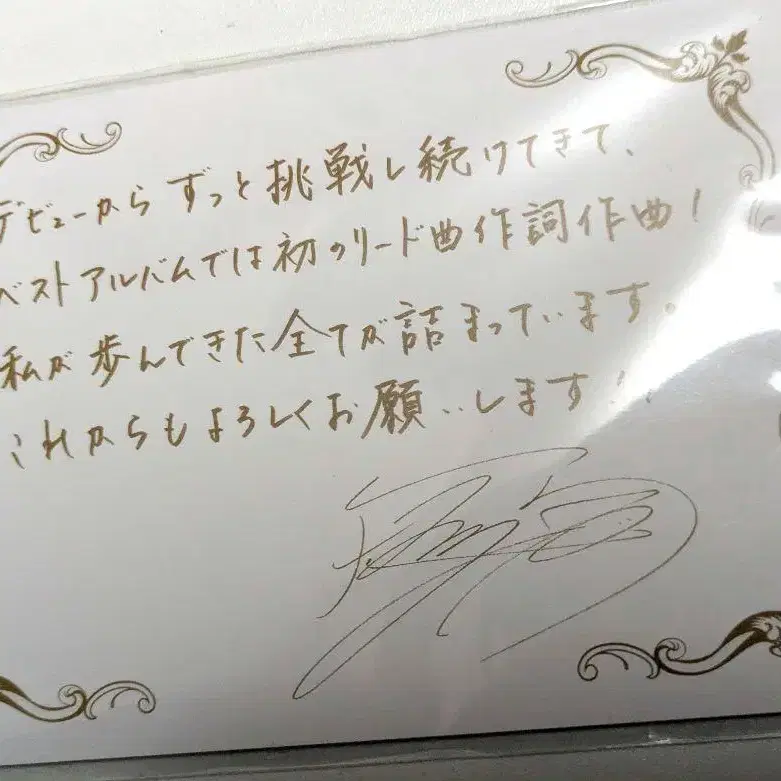 デビューからずっと挑戦し続けてきて、
ベストアルバムでは初のリード曲作詞作曲!
私が歩んできた全てが詰まっています。
これからもよろしくお願いします!!